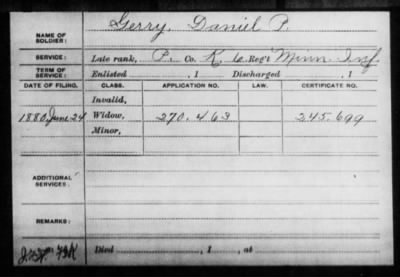 NAME OF SOLDIER: Gerry, Daniel P.
SERVICE: Late rank, P. Co. K, 6 Reg't Minn. Inf.
TERM OF SERVICE: Enlisted , 1 Discharged , 1
DATE OF FILING. CLASS. APPLICATION NO. LAW. CERTIFICATE NO.
Invalid,
1880, June 24 Widow, 270.463 245.699
Minor,
ADDITIONAL SERVICES:
REMARKS:
Died , 1 , at